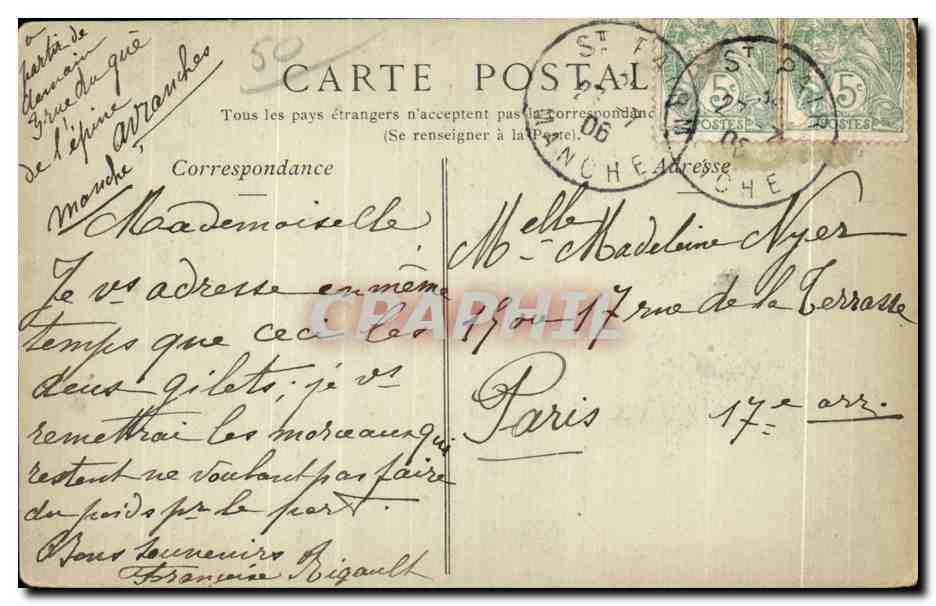 à
partir de
demain
3 rue du gué
de l'épine
Avranches
Manche
50
CARTE POSTALE
Tous les pays étrangers n'acceptent pas la correspondance
(Se renseigner à la Poste).
Correspondance
Adresse
ST PAIR
06
MANCHE
ST PAIR
06
CHE
5c
POSTES
5c
POSTES
Mademoiselle
Je vs adresse en même
temps que ceci les
deux gilets; je vs
remettrai les morceaux qui
restent ne voulant pas faire
du poids pr le port.
Bons souvenirs
Françoise Rigault
Melle Madeleine Nyer
15 ou 17 rue de la Terrasse
Paris 17e arr.
CPAPHIL